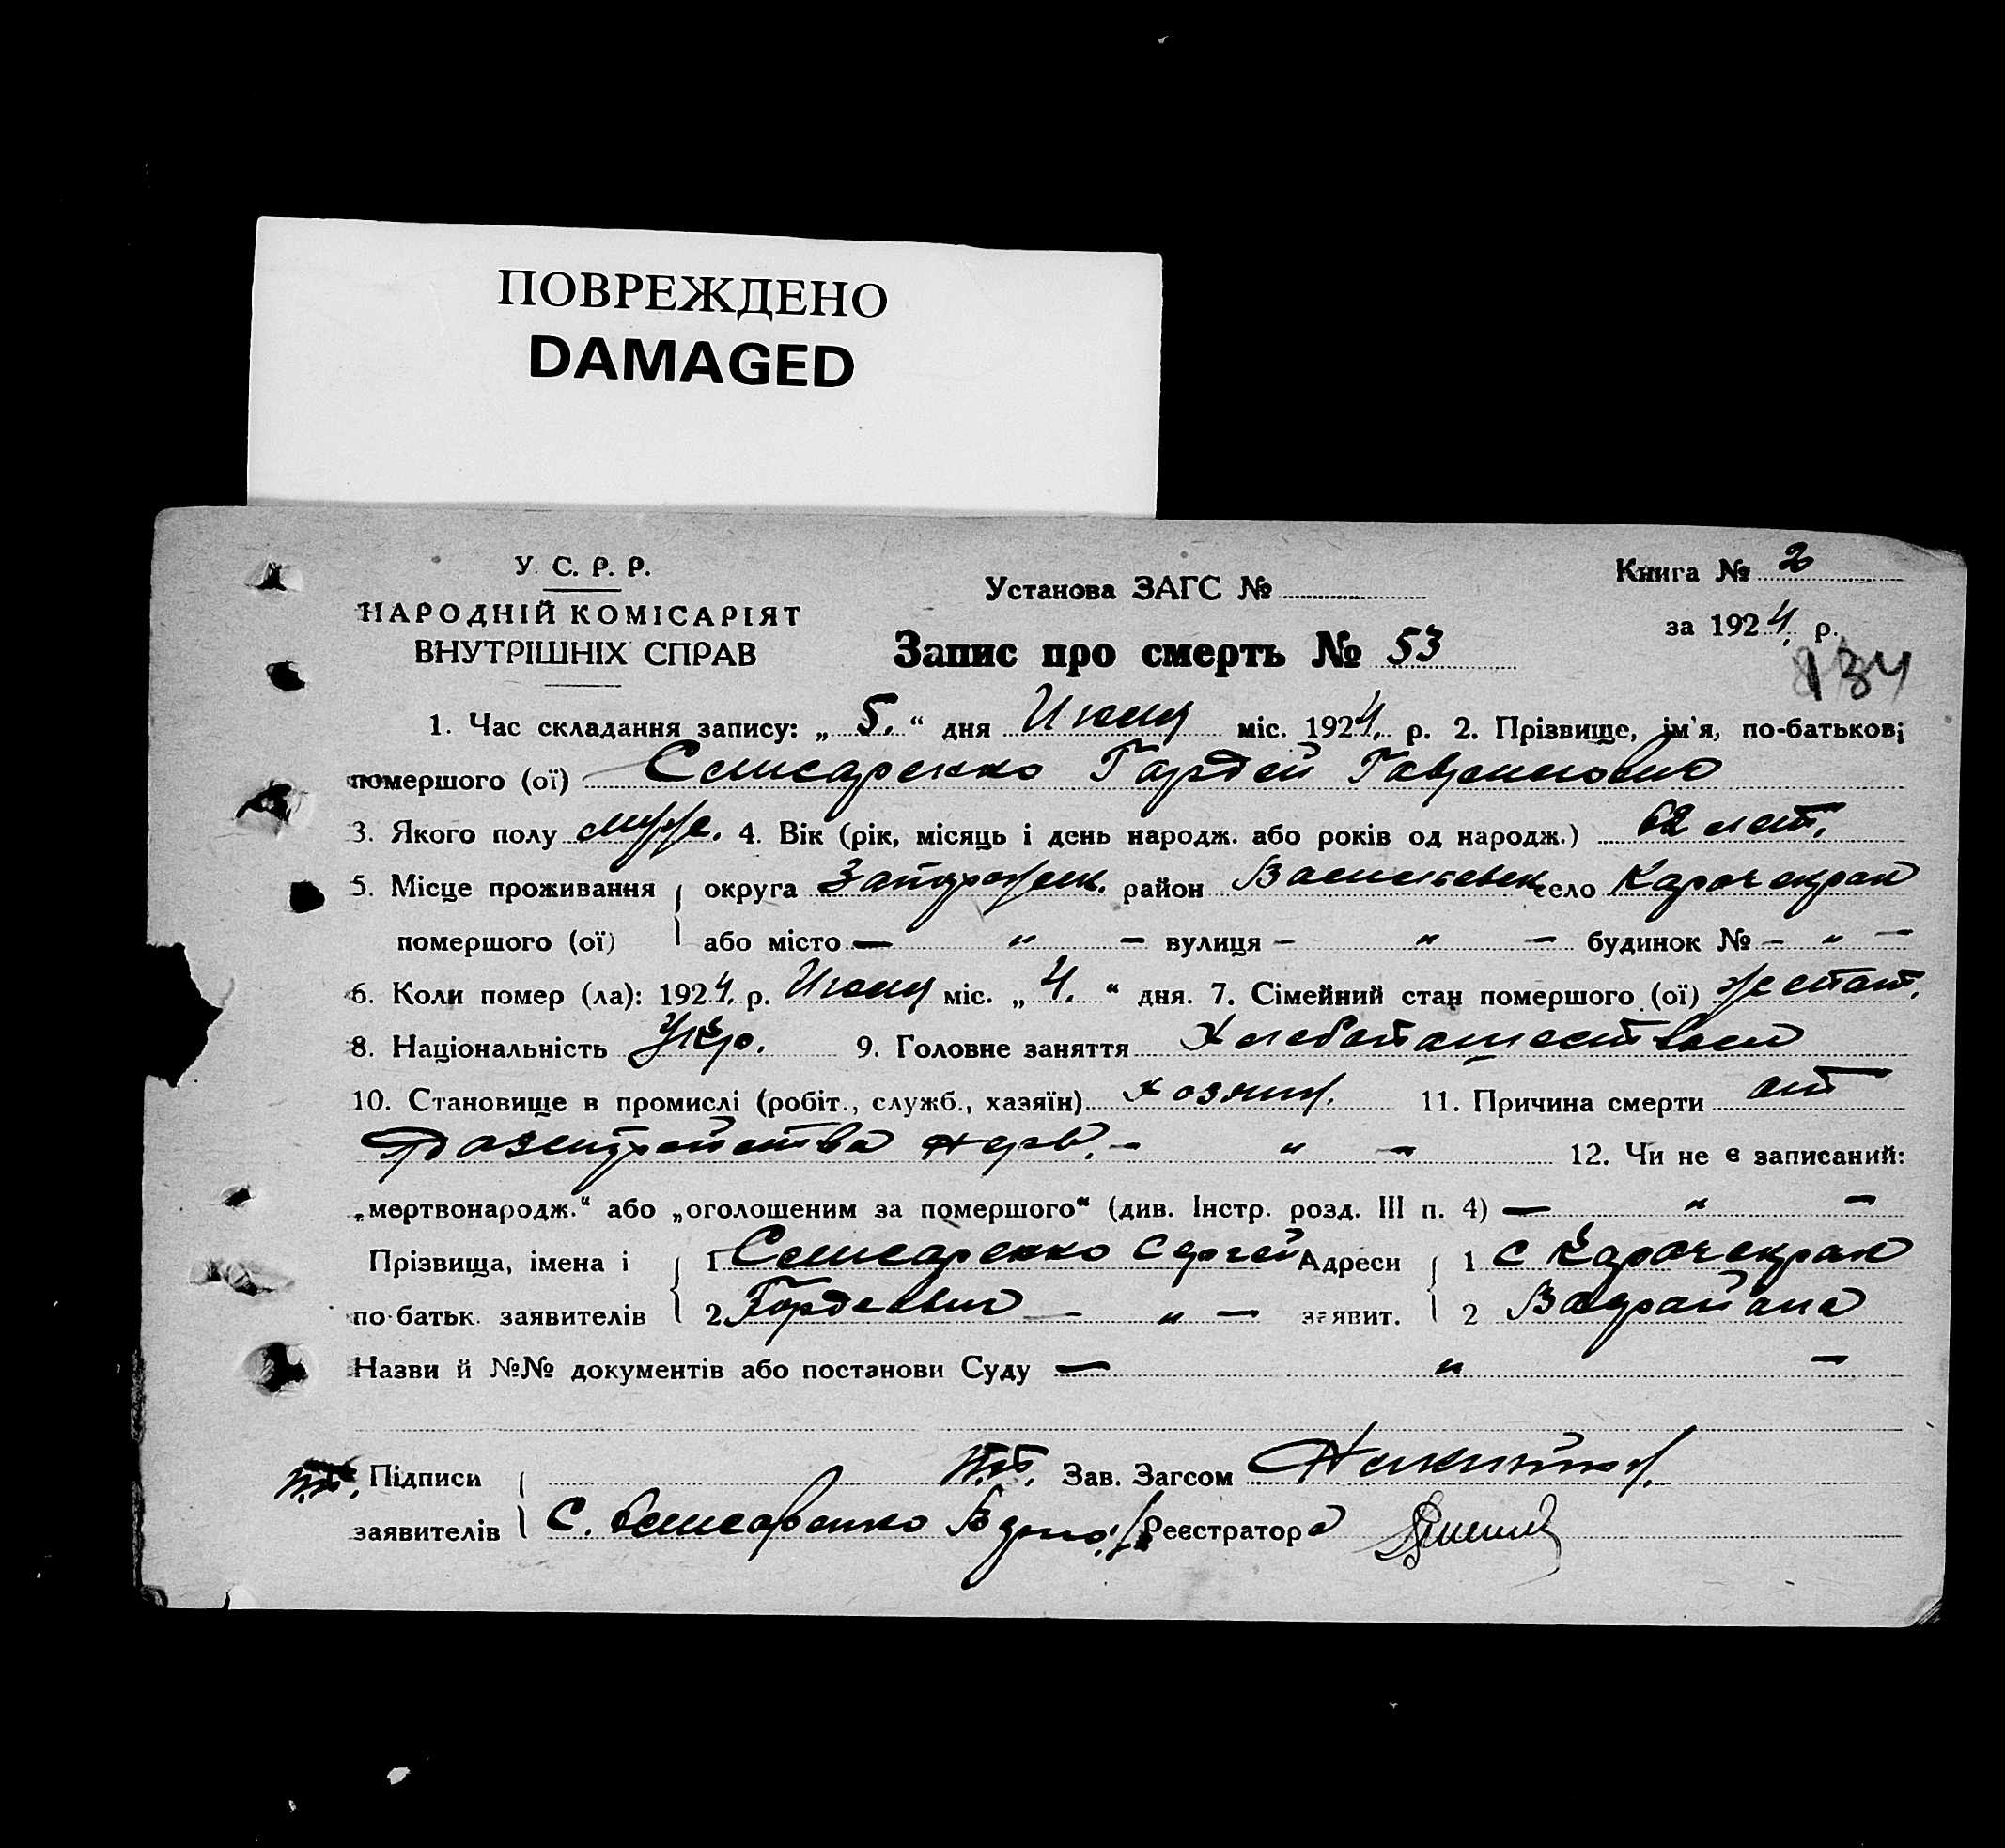 ПОВРЕЖДЕНО
DAMAGED
У. С. Р. Р.
НАРОДНІЙ КОМІСАРІЯТ
ВНУТРІШНІХ СПРАВ
Установа ЗАГС №
Книга № 2
за 1924. р.
134
Запис про смерть № 53
1. Час складання запису: „ 5. “ дня Июля міс. 1924. р. 2. Прізвище, ім'я, по-батькові
помершого (ої) Слисаренко Гордей
3. Якого полу муж. 4. Вік (рік, місяць і день народж. або років од народж.) 62 лет.
5. Місце проживання округа Запорожск. район Васильевск село Карачекрак
помершого (ої) або місто — „ — вулиця — „ — будинок № — „ —
6. Коли помер (ла): 1924. р. Июля міс. „ 4. “ дня. 7. Сімейний стан помершого (ої) женат.
8. Національність Укр. 9. Головне заняття Хлебопашеством
10. Становище в промислі (робіт., служб., хазяїн) хозяин. 11. Причина смерти от
разстройства нерв. — „ — 12. Чи не є записаний:
„мертвонародж.“ або „оголошеним за помершого“ (див. Інстр. розд. III п. 4) — „ —
Прізвища, імена і 1 Слисаренко Сергей Адреси 1 с Карачекрак
по-батьк. заявителів 2. Гордеевич — „ — заявит. 2 Васрайона
Назви й №№ документів або постанови Суду — „ —
Підписи Зав. Загсом
заявителів С. Слисаренко Реєстратор